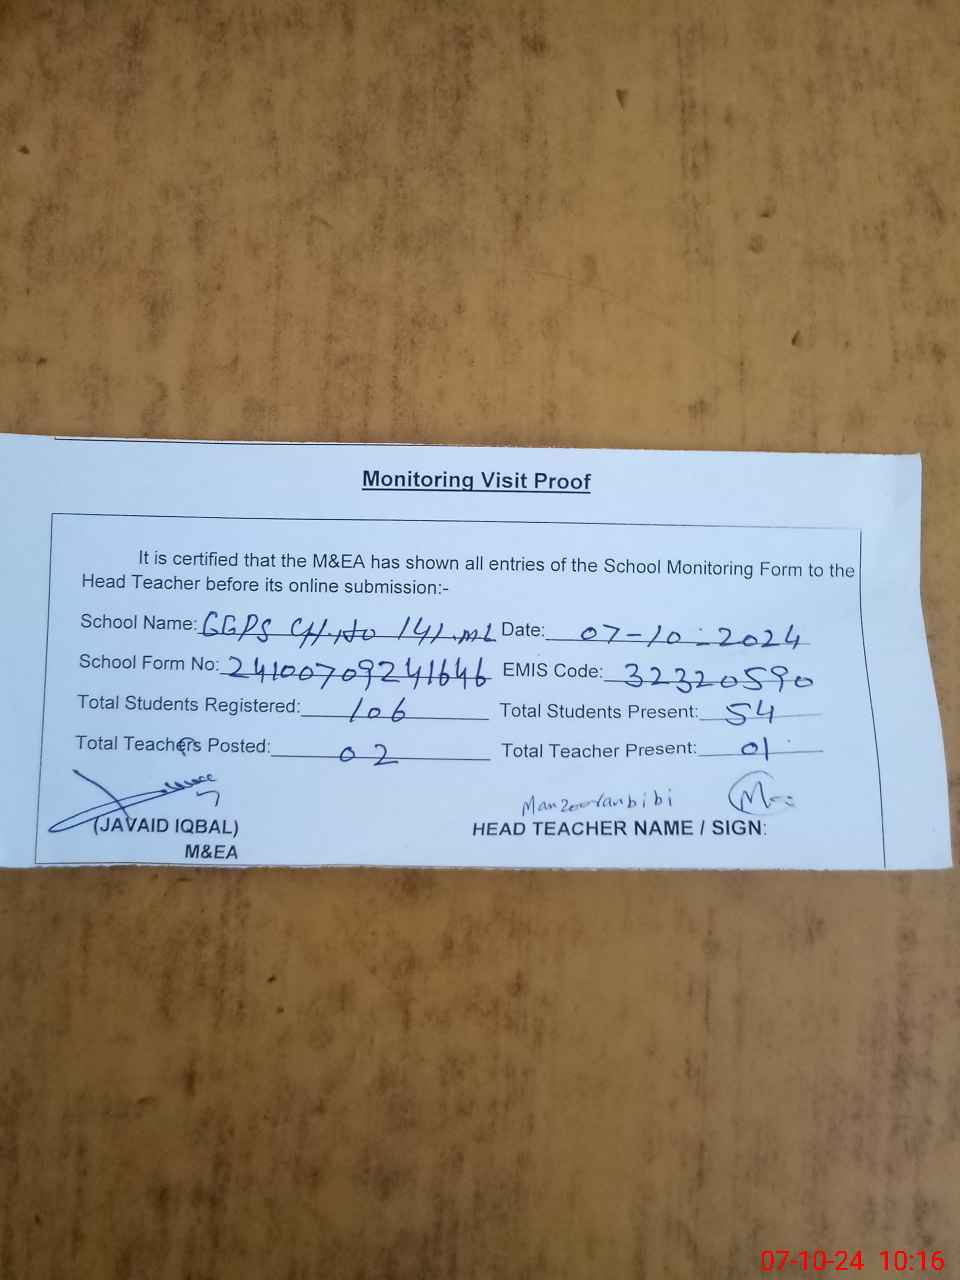 Monitoring Visit Proof
It is certified that the M&EA has shown all entries of the School Monitoring Form to the
Head Teacher before its online submission:-
School Name: GGPS CH.No 141.ML Date: 07-10-2024
School Form No: 24100709241646 EMIS Code: 32320590
Total Students Registered: 106 Total Students Present: 54
Total Teachers Posted: 02 Total Teacher Present: 01
(JAVAID IQBAL)
HEAD TEACHER NAME / SIGN:
M&EA
07-10-24 10:16